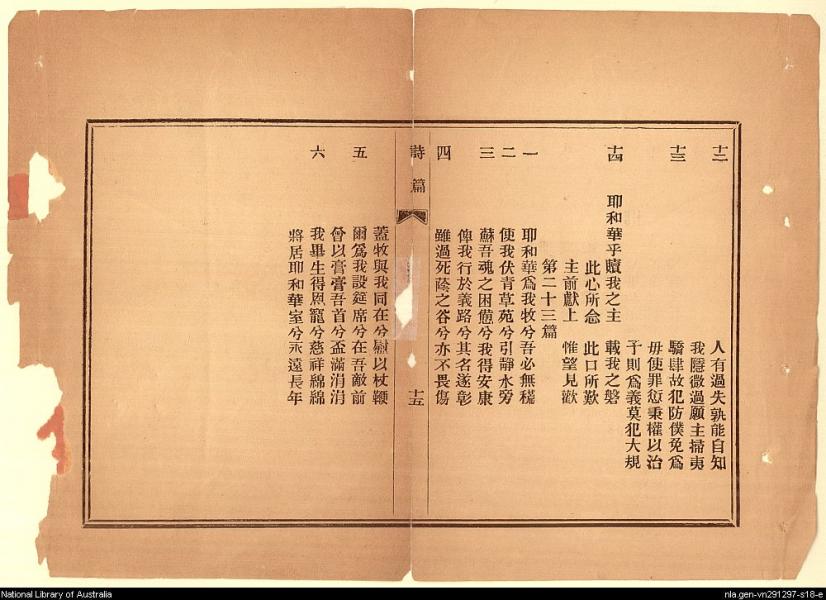 十二
人有過失孰能自知
我隱微過願主掃夷
十三
驕肆故犯防僕免爲
毋使罪愆秉權以治
予則爲義莫犯大規
十四
耶和華乎贖我之主 載我之磐
此心所念 此口所歎
主前獻上 惟望見歡
第二十三篇
一
耶和華爲我牧兮吾必無穤
二
使我伏青草苑兮引靜水旁
三
蘇吾魂之困憊兮我得安康
俾我行於義路兮其名遂彰
四
雖過死蔭之谷兮亦不畏傷
詩篇
十五
蓋牧與我同在兮慰以杖鞭
五
爾爲我設筵席兮在吾敵前
曾以膏膏吾首兮盃滿涓涓
六
我畢生得恩寵兮慈祥綿綿
將居耶和華室兮永遠長年
National Library of Australia
nla.gen-vn291297-s18-e